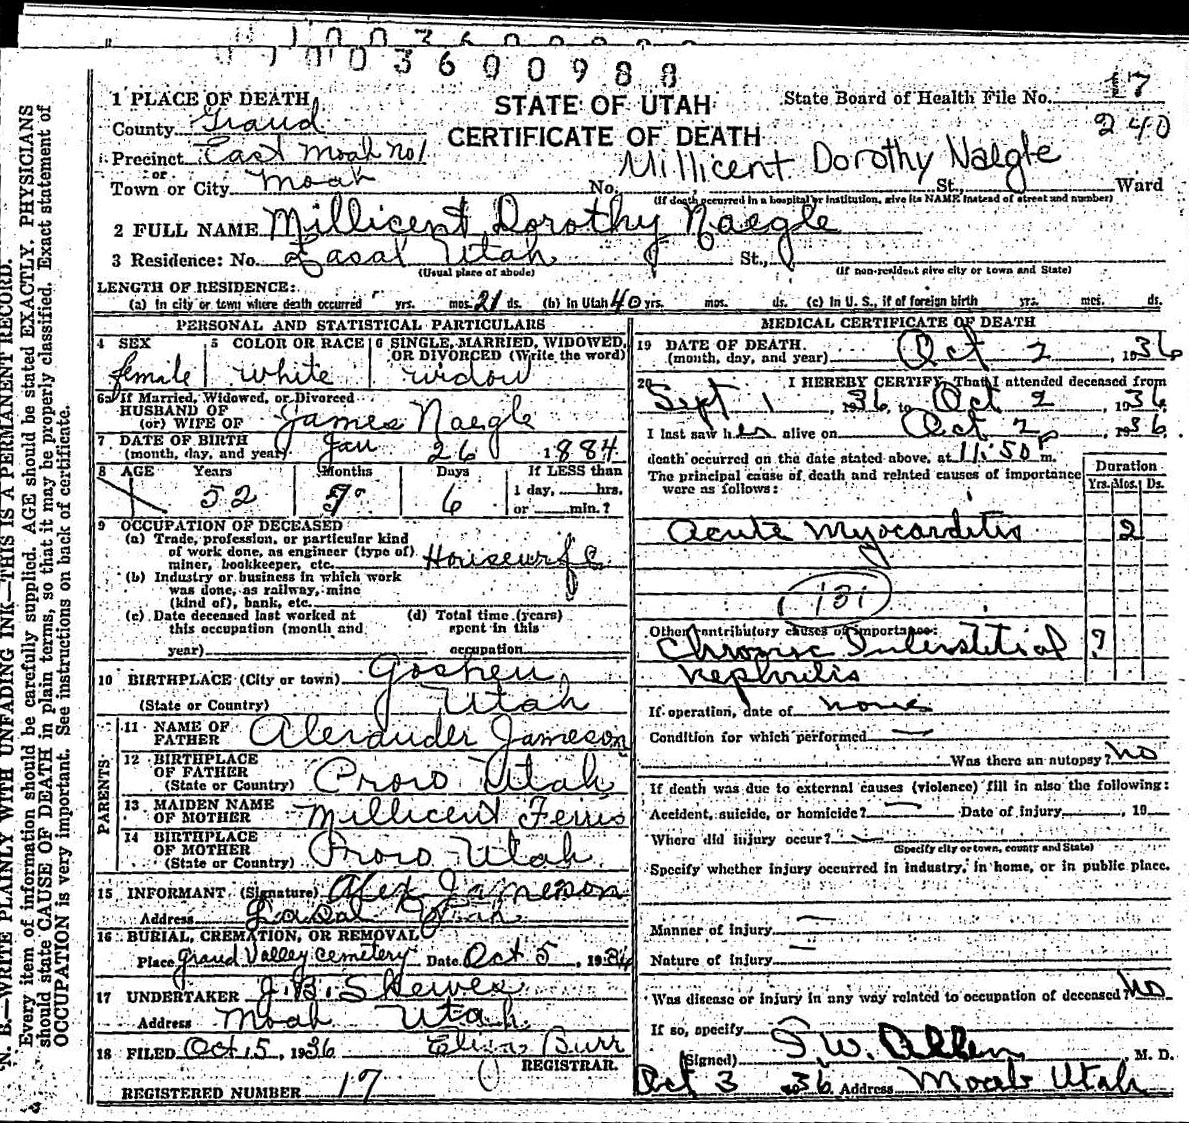 1003600988
17
STATE OF UTAH
CERTIFICATE OF DEATH
State Board of Health File No.
240
1 PLACE OF DEATH
County Grand
Precinct East Moab No 1
or
Town or City Moab No. St., Ward
Millicent Dorothy Naegle
(If death occurred in a hospital or institution, give its NAME instead of street and number)
2 FULL NAME Millicent Dorothy Naegle
3 Residence: No. Lasal Utah St.,
(Usual place of abode) (If non-resident give city or town and State)
LENGTH OF RESIDENCE:
(a) In city or town where death occurred yrs. mos. 21 ds. (b) In Utah 40 yrs. mos. ds. (c) In U. S., if of foreign birth yrs. mos. ds.
PERSONAL AND STATISTICAL PARTICULARS
4 SEX
female
5 COLOR OR RACE
white
6 SINGLE, MARRIED, WIDOWED, OR DIVORCED (Write the word)
widow
6a If Married, Widowed, or Divorced
HUSBAND OF
(or) WIFE OF James Naegle
7 DATE OF BIRTH
(month, day, and year) Jan 26 1884
8 AGE Years Months Days If LESS than
52 6 1 day, hrs.
or min.?
9 OCCUPATION OF DECEASED
(a) Trade, profession, or particular kind
of work done, as engineer (type of)
miner, bookkeeper, etc. Housewife
(b) Industry or business in which work
was done, as railway, mine
(kind of), bank, etc.
(c) Date deceased last worked at (d) Total time (years)
this occupation (month and spent in this
year) occupation
10 BIRTHPLACE (City or town) Goshen
(State or Country) Utah
PARENTS
11 NAME OF
FATHER Alexander Jameson
12 BIRTHPLACE
OF FATHER
(State or Country) Provo Utah
13 MAIDEN NAME
OF MOTHER Millicent Ferris
14 BIRTHPLACE
OF MOTHER
(State or Country) Provo Utah
15 INFORMANT (Signature) Alex Jameson
Address Lasal Utah
16 BURIAL, CREMATION, OR REMOVAL
Place Grand Valley Cemetery Date Oct 5, 1936
17 UNDERTAKER J. B. Skewes
Address Moab Utah
18 FILED Oct 5, 1936 Eliza Burr
REGISTRAR.
REGISTERED NUMBER 17
MEDICAL CERTIFICATE OF DEATH
19 DATE OF DEATH
(month, day, and year) Oct 2, 1936
20 I HEREBY CERTIFY, That I attended deceased from
Sept 1, 1936, to Oct 2, 1936
I last saw her alive on Oct 2, 1936,
death occurred on the date stated above, at 11:50 P m.
The principal cause of death and related causes of importance
were as follows:
Duration
Yrs. Mos. Ds.
Acute Myocarditis 2
131
Other contributory causes of importance:
Chronic Interstitial ?
Nephritis
If operation, date of none
Condition for which performed —
Was there an autopsy? No
If death was due to external causes (violence) fill in also the following:
Accident, suicide, or homicide? — Date of injury , 19
Where did injury occur?
(Specify city or town, county and State)
Specify whether injury occurred in industry, in home, or in public place.
Manner of injury —
Nature of injury —
Was disease or injury in any way related to occupation of deceased? No
If so, specify
(Signed) I. W. Allen, M. D.
Oct 3 1936 Address Moab Utah
N. B.—WRITE PLAINLY WITH UNFADING INK—THIS IS A PERMANENT RECORD.
Every item of information should be carefully supplied. AGE should be stated EXACTLY. PHYSICIANS
should state CAUSE OF DEATH in plain terms, so that it may be properly classified. Exact statement of
OCCUPATION is very important. See instructions on back of certificate.